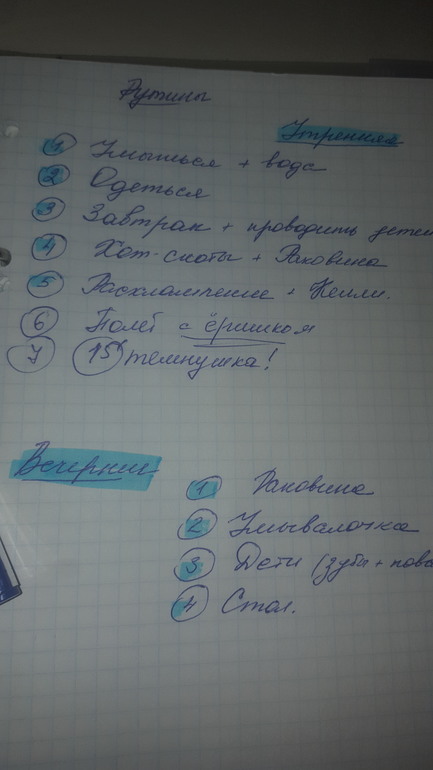 Рутины
Утренняя
1 Умыться + вода
2 Одеться
3 Завтрак + проводить детей
4 Хот-споты + Раковина
5 Расхламление + Келли.
6 Полёт с ёршиком
7 15' темнушка!
Вечерние
1 Раковина
2 Умывалочка
3 Дети (зубы +
4 Стол.